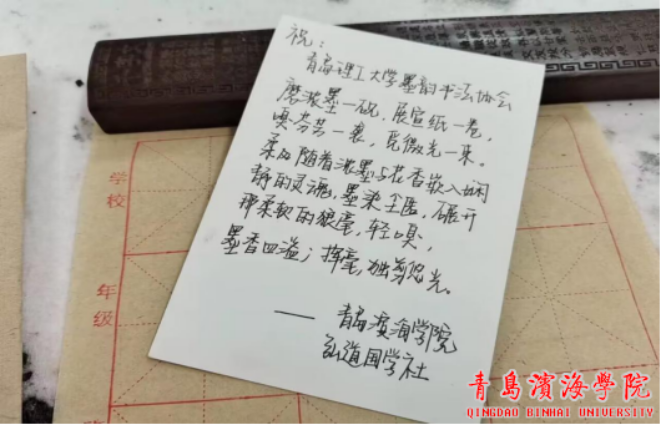 祝：
青岛理工大学墨韵书法协会
磨浓墨一砚，展宣纸一卷，
嗅芬芳一裹，瓦微光一束。
柔的随着浓墨与花香嵌入娴
静的灵魂，墨染尘匿，碾开
那柔软的狼毫，轻嗅，
墨香四溢；挥毫，剪悠光。
—— 青岛滨海学院
弘道国学社
学校
年级
青島濱海學院
QINGDAO BINHAI UNIVERSITY